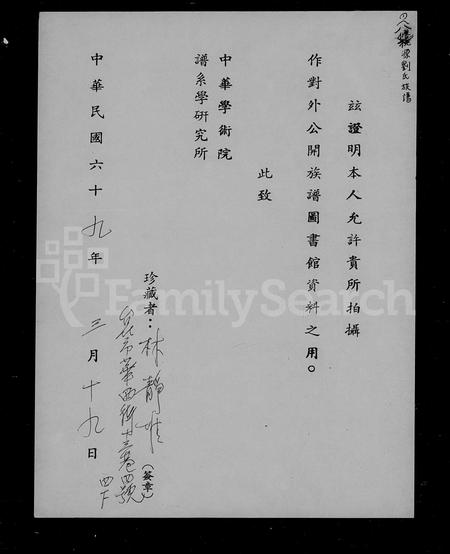 桃源劉氏族譜
茲證明本人允許貴所拍攝
作對外公開族譜圖書館資料之用。
此致
中華學術院
譜系學研究所
珍藏者：林靜
(簽章)
四號
四F
中華民國六十九年三月十九日
FamilySearch